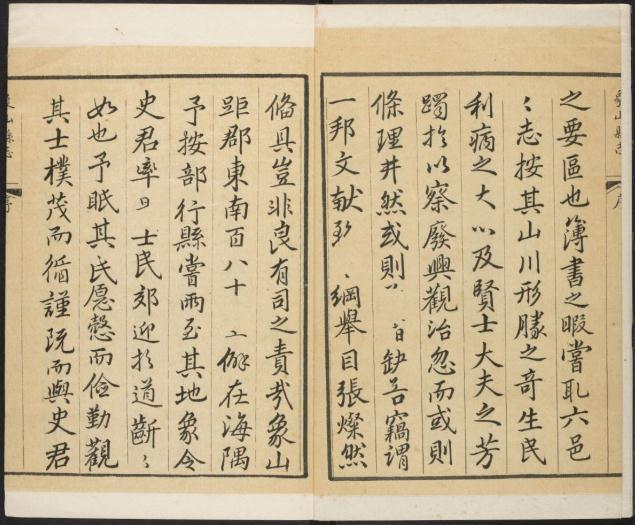 之要區也簿書之暇嘗取六邑
〻志按其山川形勝之奇生民
利病之大以及賢士大夫之芳
躅於以察廢興觀治忽而或則
條理井然或則 缺吾竊謂
一邦文献 綱舉目張燦然
俻具豈非良有司之責哉象山
距郡東南百八十 僻在海隅
予按部行縣嘗兩至其地象令
史君率 士民郊迎於道齗〻
如也予眂其民愿慤而儉勤觀
其士樸茂而循謹既而與史君
象山縣志
序